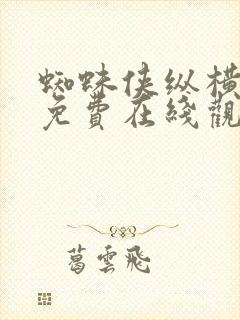 蜘蛛侠纵横
免費在綫觀
葛雲飛